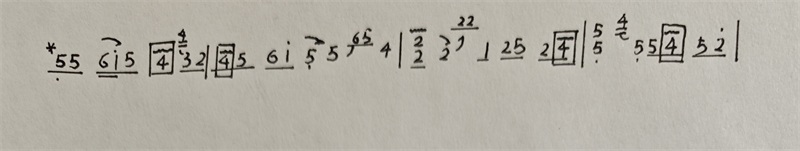 *55 6i5 4 4 32|45 6i 5 5 65 4|2 2 2 22 1 25 24|5 5 4 5 54 52|